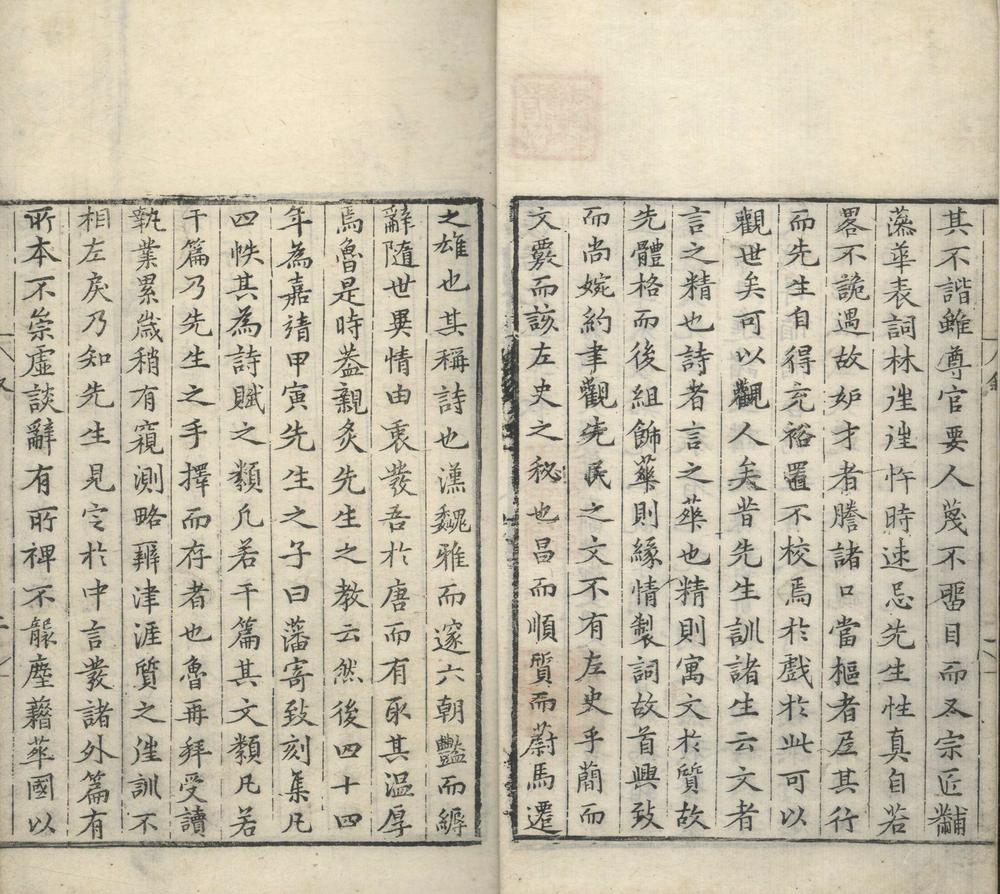 其不諧雖尊官要人蔑不畱目而及宗匠黼
藻華表詞林遑遑忤時速忌先生性真自若
畧不詭遇故妒才者騰諸口當樞者戹其行
而先生自得充裕置不校焉於戲於此可以
觀世矣可以觀人矣昔先生訓諸生云文者
言之精也詩者言之華也精則寓文於質故
先體格而後組飾華則緣情製詞故首興致
而尚婉約聿觀先民之文不有左史乎蕑而
文覈而該左史之秘也昌而順質而蔚馬遷
之雄也其稱詩也漢魏雅而邃六朝豔而縟
辭隨世異情由衷發吾於唐而有取其溫厚
焉魯是時葢親炙先生之教云然後四十四
年為嘉靖甲寅先生之子曰藩寄致刻集凡
四帙其為詩賦之類凡若干篇其文類凡若
干篇乃先生之手擇而存者也魯再拜受讀
執業累歲稍有窺測略辨津涯質之徃訓不
相左戾乃知先生見定於中言發諸外篇有
所本不崇虛談辭有所裨不龎塵藉華國以